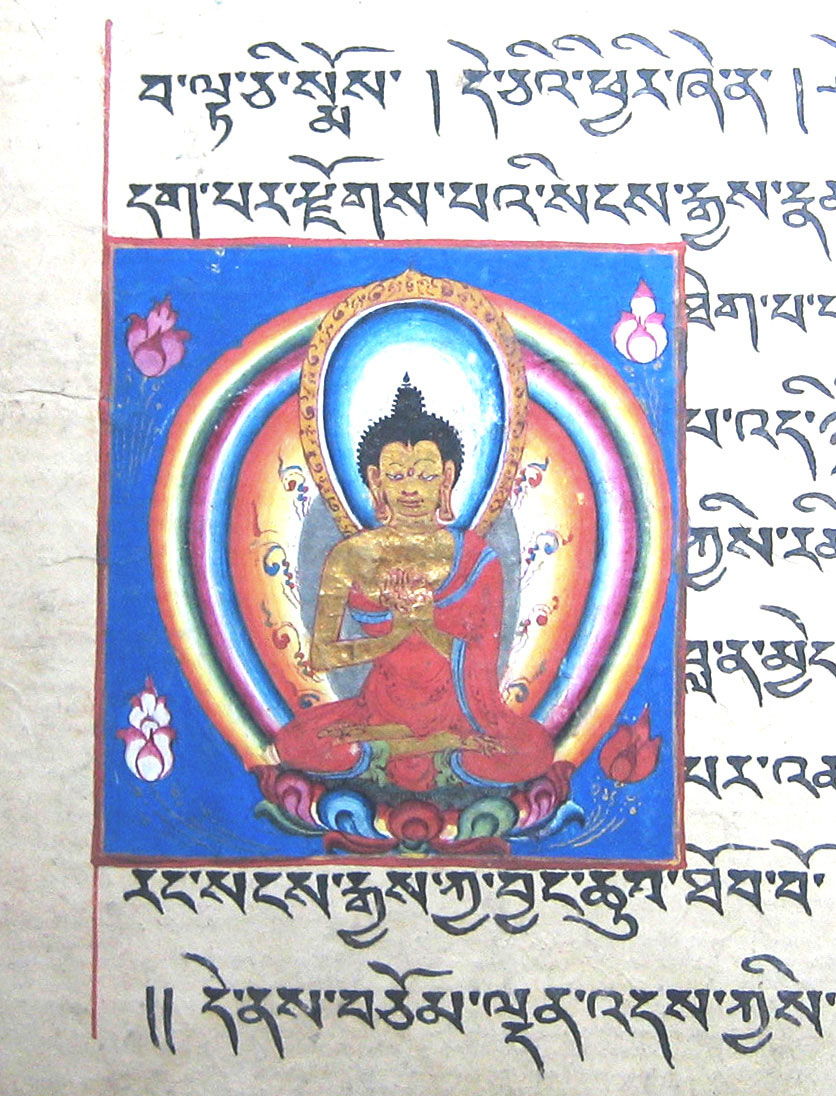 བ་ལྟ་ཅི་སྨོས་ ། དེ་ཅའི་ཕྱིར་ཞེ་ན་ །
དག་པར་རྫོགས་པའི་སངས་རྒྱས་རྣམ
ཐེག་པ་
པ་འད་
ཀྱིས་
བླ་ན་མྱེད
པར་
རང་སངས་རྒྱས་ཀྱ་བྱང་ཆུབ་ཐོབ་བོ་
།། དེ་ནས་བཅོམ་ལྡན་འདས་ཀྱིས་